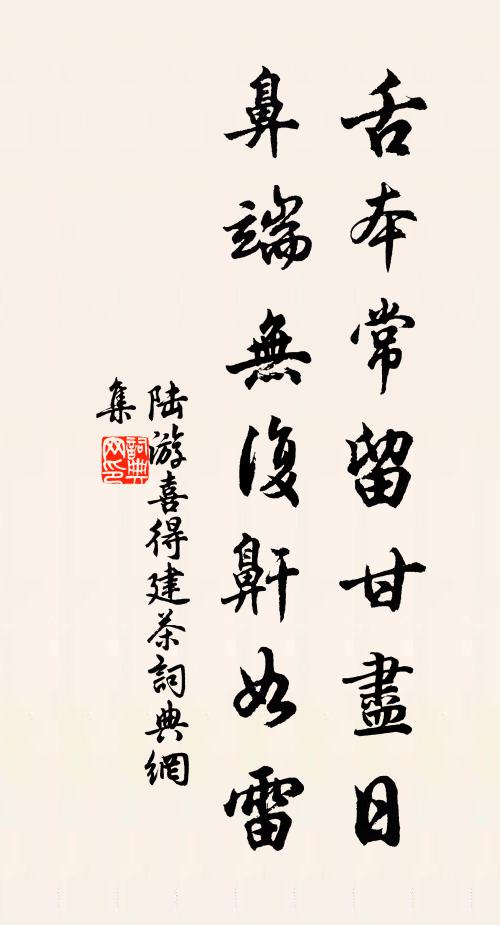 舌本常留甘盡日
鼻端無復鼾如雷
陆游喜得建茶詞典網
集
詞典
网印